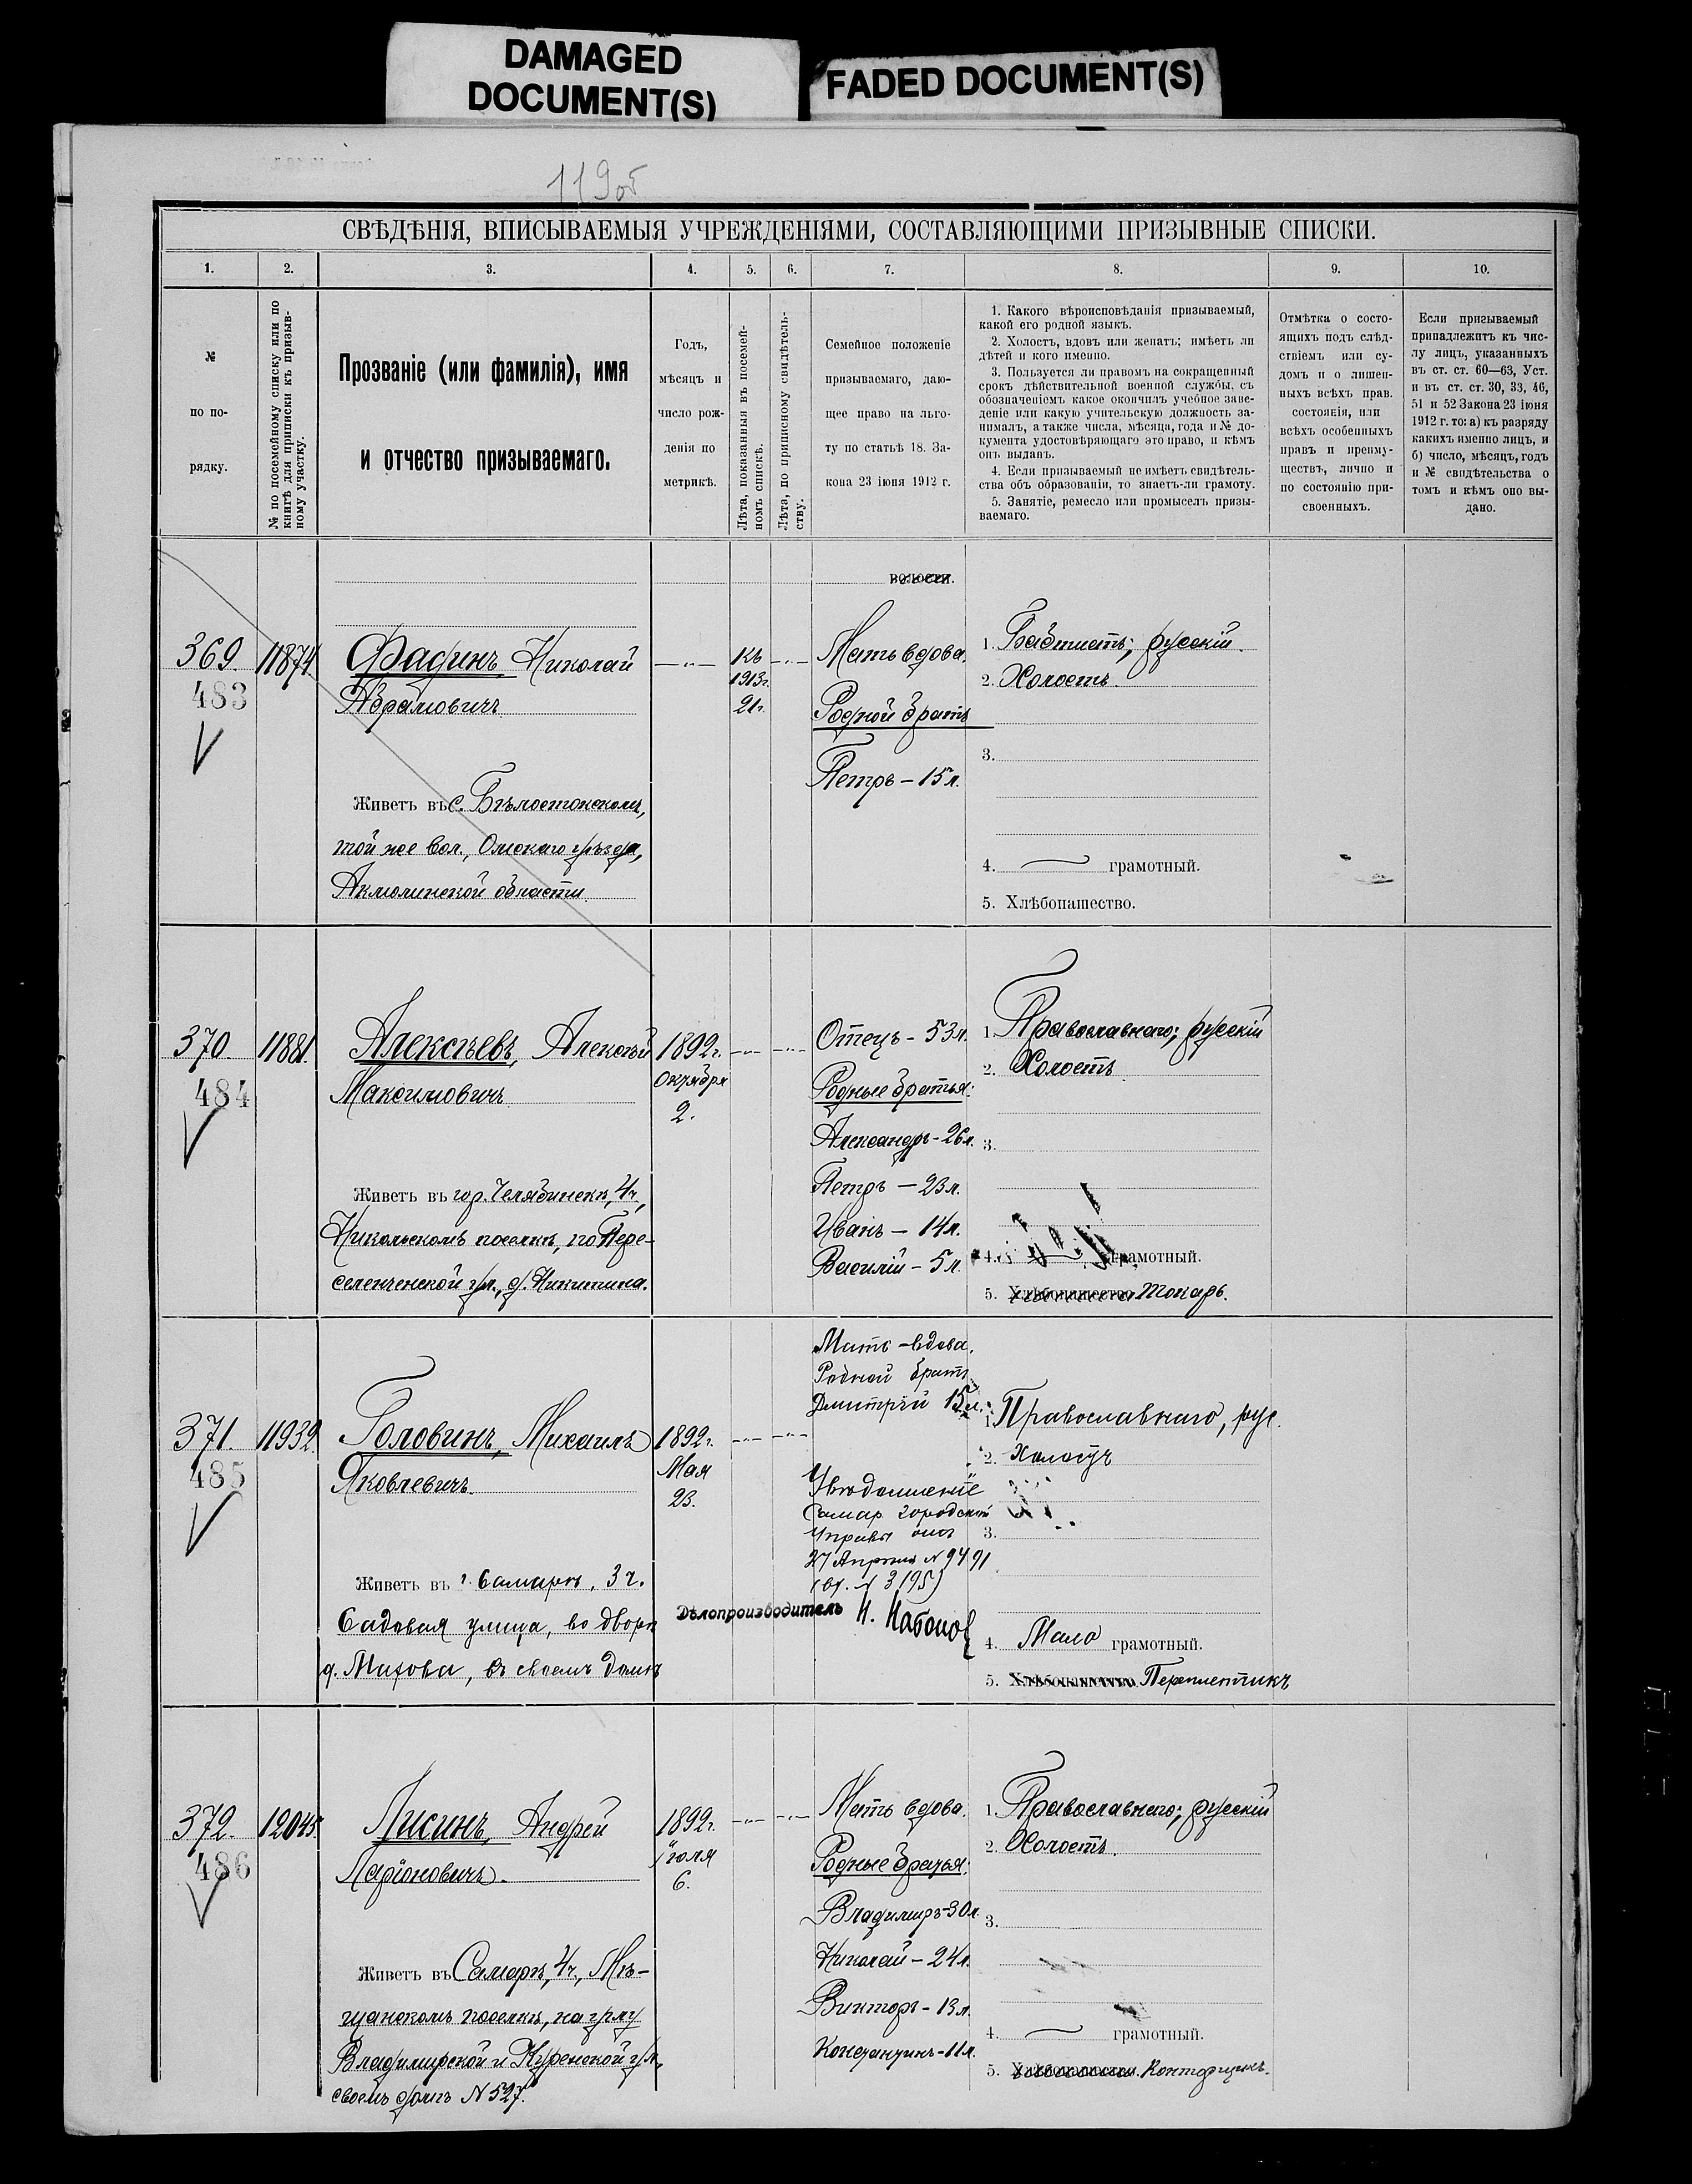 DAMAGED
DOCUMENT(S)
FADED DOCUMENT(S)
119об
СВѢДѢНІЯ, ВПИСЫВАЕМЫЯ УЧРЕЖДЕНІЯМИ, СОСТАВЛЯЮЩИМИ ПРИЗЫВНЫЕ СПИСКИ.
1. 2. 3. 4. 5. 6. 7. 8. 9. 10.
№
по по-
рядку.
№ по посемейному списку или по
книгѣ для приписки къ призыв-
ному участку.
Прозваніе (или фамилія), имя
и отчество призываемаго.
Годъ,
мѣсяцъ и
число рож-
денія по
метрикѣ.
Лѣта, показанныя въ посемей-
номъ спискѣ.
Лѣта, по приписному свидѣтель-
ству.
Семейное положеніе
призываемаго, даю-
щее право на льго-
ту по статьѣ 18. За-
кона 23 іюня 1912 г.
1. Какого вѣроисповѣданія призываемый,
какой его родной языкъ.
2. Холостъ, вдовъ или женатъ; имѣетъ ли
дѣтей и кого именно.
3. Пользуется ли правомъ на сокращенный
срокъ дѣйствительной военной службы, съ
обозначеніемъ какое окончилъ учебное заве-
деніе или какую учительскую должность за-
нималъ, а также числа, мѣсяца, года и № до-
кумента удостовѣряющаго это право, и кѣмъ
онъ выданъ.
4. Если призываемый не имѣетъ свидѣтель-
ства объ образованіи, то знаетъ-ли грамоту.
5. Занятіе, ремесло или промыселъ призы-
ваемаго.
Отмѣтка о состо-
ящихъ подъ слѣд-
ствіемъ или су-
домъ и о лишен-
ныхъ всѣхъ прав.
состоянія, или
всѣхъ особенныхъ
правъ и преиму-
ществъ, лично и
по состоянію при-
своенныхъ.
Если призываемый
принадлежитъ къ чис-
лу лицъ, указанныхъ
въ ст. ст. 60—63, Уст.
и въ ст. ст. 30, 33, 46,
51 и 52 Закона 23 іюня
1912 г. то: а) къ разряду
какихъ именно лицъ, и
б) число, мѣсяцъ, годъ
и № свидѣтельства о
томъ и кѣмъ оно вы-
дано.
волости.
369. 11874.
483
Фадинъ, Николай
Абрамовичъ
Живетъ въ с. Бѣлостокскомъ,
той же вол., Омскаго уѣзда,
Акмолинской области
—„— къ
1913 г.
21 г.
—„—
Мать вдова.
Родной братъ
Петръ — 15 л.
1. Баптистъ; русскій.
2. Холостъ.
3.
4. грамотный.
5. Хлѣбопашество.
370. 11881.
484
Алексѣевъ, Алексѣй
Максимовичъ
Живетъ въ гор. Челябинскѣ, 4 ч.,
Никольскомъ поселкѣ, по Пере-
селенческой ул., д. Никитина.
1892 г.
Октября
2.
Отецъ - 53 л.
Родные братья:
Александръ - 26 л.
Петръ — 23 л.
Иванъ — 14 л.
Василій — 5 л.
1. Православнаго; русскій
2. Холостъ
3.
4. грамотный.
5. Хлѣбопашество Токарь.
371. 11932.
485
Головинъ, Михаилъ
Яковлевичъ.
Живетъ въ г. Самарѣ, 3 ч.
Садовая улица, во дворѣ
д. Махова, въ своемъ домѣ
1892 г.
Мая
23.
Мать - вдова.
Родной братъ
Дмитрій 15 л.
Увѣдомленіе
Самар. городской
Управы отъ
27 Апрѣля № 9491
(вх. № 3195)
Дѣлопроизводитель
1. Православнаго, рус.
2. Холостъ
3.
4. Мало грамотный.
5. Хлѣбопашество. Переплетчикъ
372. 12045.
486
Лисинъ, Андрей
Ларіоновичъ.
Живетъ въ Самарѣ, 4 ч., Мѣ-
щанскомъ поселкѣ, на углу
Владимирской и Журенской ул.,
своемъ домѣ № 527.
1892 г.
Іюля
6.
Мать вдова.
Родные братья:
Владимиръ - 30 л.
Николай — 24 л.
Викторъ - 13 л.
Константинъ - 11 л.
1. Православнаго; русскій
2. Холостъ.
3.
4. грамотный.
5. Хлѣбопашество. Конторщикъ.